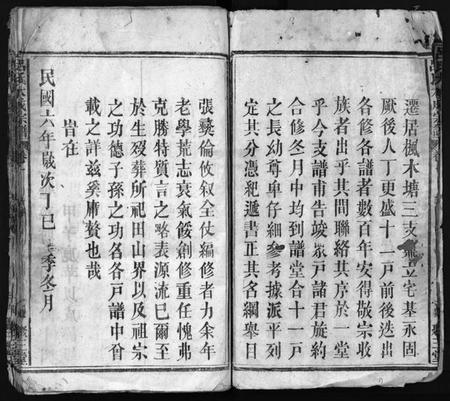 遷居楓木塘三支𠫵立宅基永固
厥後人丁更盛十一戸前後迭出
各修各譜者數百年安得敬宗收
族者出乎其問聯絡其序於一堂
乎今支譜甫告竣衆戸諸君旋約
合修冬月中均到譜堂合十一戸
之長幼尊卑仔細參考據派平列
定其分憑紀遞書正其名綱舉目
張彝倫攸叙全仗編修者力余年
老學荒志衰氣餒創修重任愧弗
克勝特質言之畧表源流已爾至
於生殁葬所祀田山界以及祖宗
之功德子孫之功名各戸譜中曾
載之詳兹奚庸贅也哉
皆在
民國六年歲次丁巳 季冬月